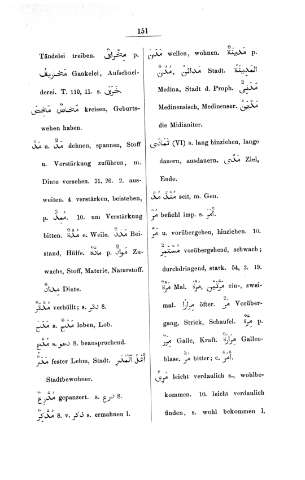 151
Tändelei treiben. مَخْرَاقٌ p.
مَخَارِيقُ Gaukelei, Aufschnei-
derei. T. 110, 11. s. خَرَقَ.
مَخَضَ مَخَاضٌ kreisen, Geburts-
wehen haben.
مَدَّ u مَدٌّ dehnen, spannen, Stoff
u. Verstärkung zuführen, m.
Dinte versehen. 31, 26. 2. aus-
weiten. 4 verstärken, beistehen,
p. مُمِدٌّ. 10. um Verstärkung
bitten. مُدَّةٌ e. Weile. مَدَدٌ Bei-
stand, Hülfe. مَادَّةٌ p. مَوَادُّ Zu-
wachs, Stoff, Materie, Naturstoff.
مِدَادٌ Dinte.
مُدَّثِّرٌ verhüllt; s. دثر 8.
مَدَحَ a مَدْحٌ loben, Lob.
مُدَّعٍ s. دعو 8. beanspruchend.
مَدَرٌ fester Lehm, Stadt. أَهْلُ الْمَدَرِ
Stadtbewohner.
مُدَّرِعٌ gepanzert. s. درع 8.
مُدَّكِرٌ 8. v. ذكر s. ermahnen l.
مَدَنَ weilen, wohnen. مَدِينَةٌ p.
مَدَائِنُ Stadt. مُدُنٌ. الْمَدِينَةُ
Medina, Stadt d. Proph. مَدَنِيٌّ
Medinensisch, Medinenser. مَدْيَنُ
die Midianiter.
تَمَادَى (VI) s. lang hinziehen, lange
dauern, ausdauern. مَدًى Ziel,
Ende.
مُذْ مُنْذُ seit, m. Gen.
مُرْ befiehl imp. s. أمر.
مَرَّ u. vorübergehen, hinziehen. 10.
مُسْتَمِرٌّ vorübergehend, schwach;
durchdringend, stark. 54, 2. 19.
مَرَّةٌ Mal. مَرَّةً, مَرَّتَيْنِ ein-, zwei-
mal. مِرَارًا öfter. مَرٌّ Vorüber-
gang, Strick, Schaufel. مِرَّةٌ p.
مِرَرٌ Galle, Kraft. مَرَارَةٌ Gallen-
blase. مُرٌّ bitter; c. أَمَرُّ.
مَرُؤَ leicht verdaulich s., wohlbe-
kommen. 10. leicht verdaulich
finden, s. wohl bekommen l.